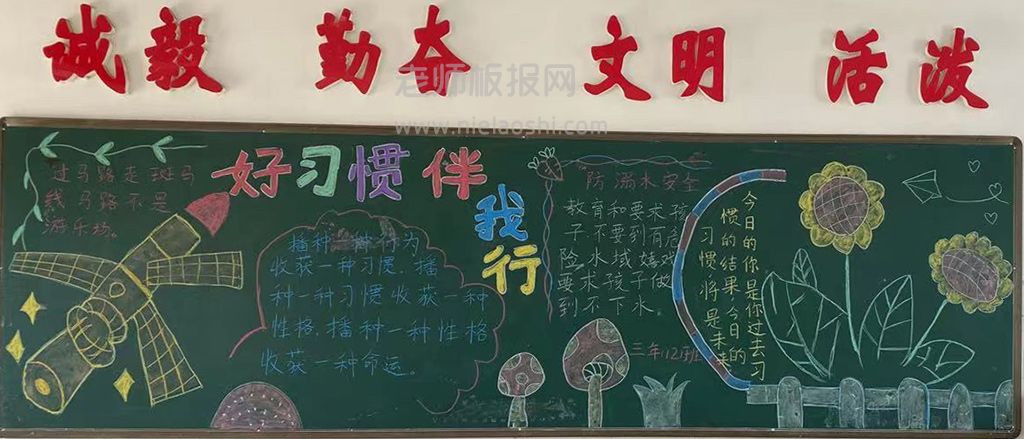 诚毅 勤奋 文明 活泼
老师板报网
www.nielaoshi.com
过马路走斑马
线马路不是
游乐场。
好习惯伴
我
行
播种一种行为
收获一种习惯.播
种一种习惯收获一种
性格.播种一种性格
收获一种命运。
防溺水安全
教育和要求孩
子不要到有危
险水域嬉戏
要求孩子做
到不下水。
三年(12)班
今日的你是你过去习
惯的结果,今日的
习惯将是未来